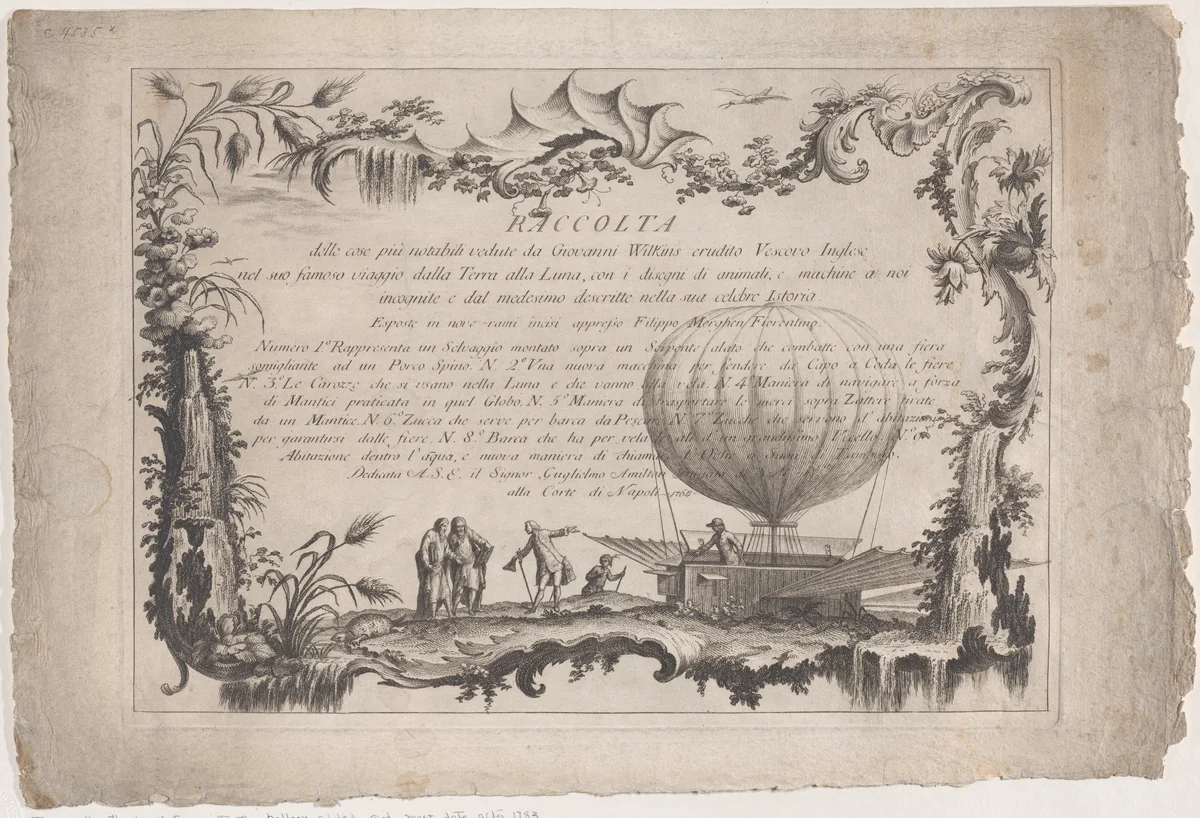 c 4535 x
RACCOLTA
delle cose più notabili vedute da Giovanni Wilkins erudito Vescovo Inglese
nel suo famoso viaggio dalla Terra alla Luna, con i disegni di animali, e machine a noi
incognite e dal medesimo descritte nella sua celebre Istoria.
Esposte in nove rami incisi appresso Filippo Morghen Fiorentino.
Numero 1º Rappresenta un Selvaggio montato sopra un Serpente alato che combatte con una fiera
somigliante ad un Porco Spino. N. 2º Vna nuova macchina per fendere da Capo a Coda le fiere
N. 3º Le Carozze che si usano nella Luna e che vanno alla vela. N. 4º Maniera di navigare a forza
di Mantici praticata in quel Globo. N. 5º Maniera di trasportare le merci sopra Zattere tirate
da un Mantice. N. 6º Zucca che serve per barca da Pescare. N. 7º Zucche che servono d'abitazione
per garantirsi dalle fiere. N. 8º Barca che ha per vela ali d'un grandissimo Vccello. N. 9º
Abitazione dentro l'aqua, e nuova maniera di chiamare
Dedicata A. S. E. il Signor Guglielmo Amilton
alla Corte di Napoli 1764
balloon added and must date after 1783